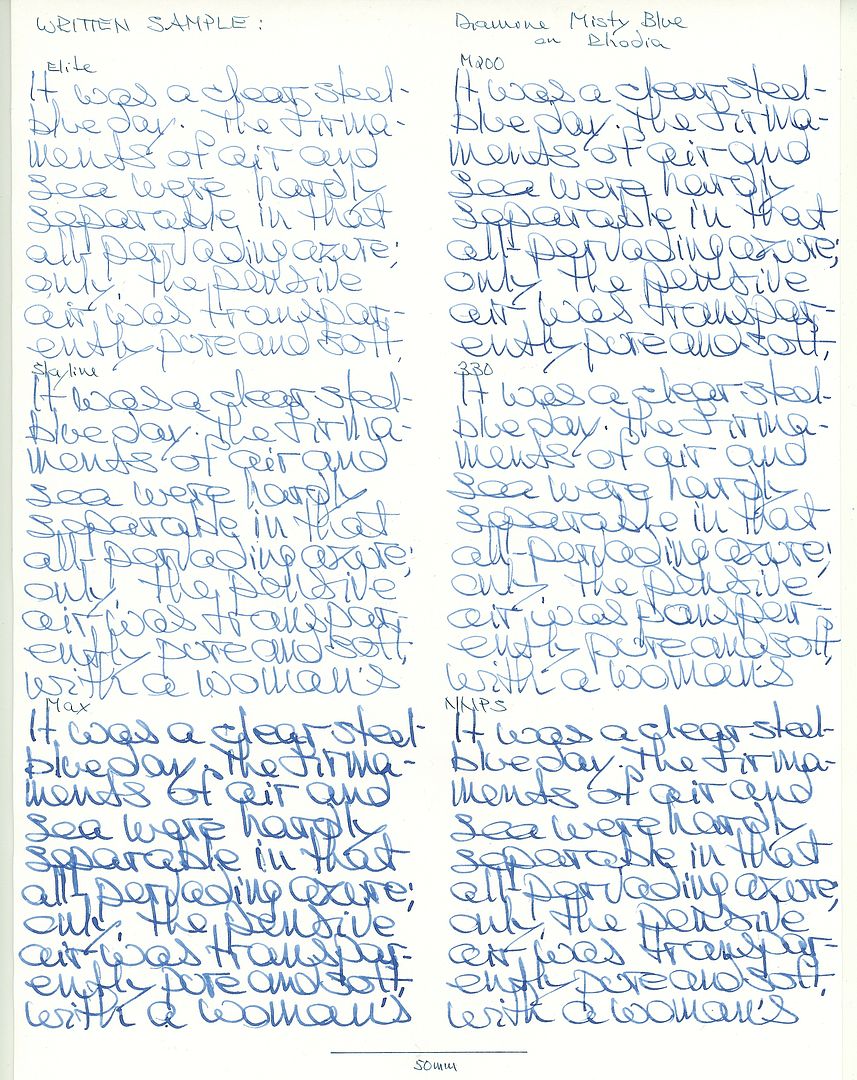 WRITTEN SAMPLE:
Diamine Misty Blue
on Rhodia
Elite
It was a clear steel-
blue day. The firma-
ments of air and
sea were hardly
separable in that
all-pervading azure;
only, the pensive
air was transpar-
ently pure and soft,
Skyline
It was a clear steel-
blue day. The firma-
ments of air and
sea were hardly
separable in that
all-pervading azure;
only, the pensive
air was transpar-
ently pure and soft,
with a woman's
Max
It was a clear steel-
blue day. The firma-
ments of air and
sea were hardly
separable in that
all-pervading azure;
only, the pensive
air was transpar-
ently pure and soft,
with a woman's
M200
It was a clear steel-
blue day. The firma-
ments of air and
sea were hardly
separable in that
all-pervading azure;
only, the pensive
air was transpar-
ently pure and soft,
330
It was a clear steel-
blue day. The firma-
ments of air and
sea were hardly
separable in that
all-pervading azure;
only, the pensive
air was
ently pure and soft,
with a woman's
NMPS
It was a clear steel-
blue day. The firma-
ments of air and
sea were hardly
separable in that
all-pervading azure;
only, the pensive
air was transpar-
ently pure and soft,
with a woman's
50mm